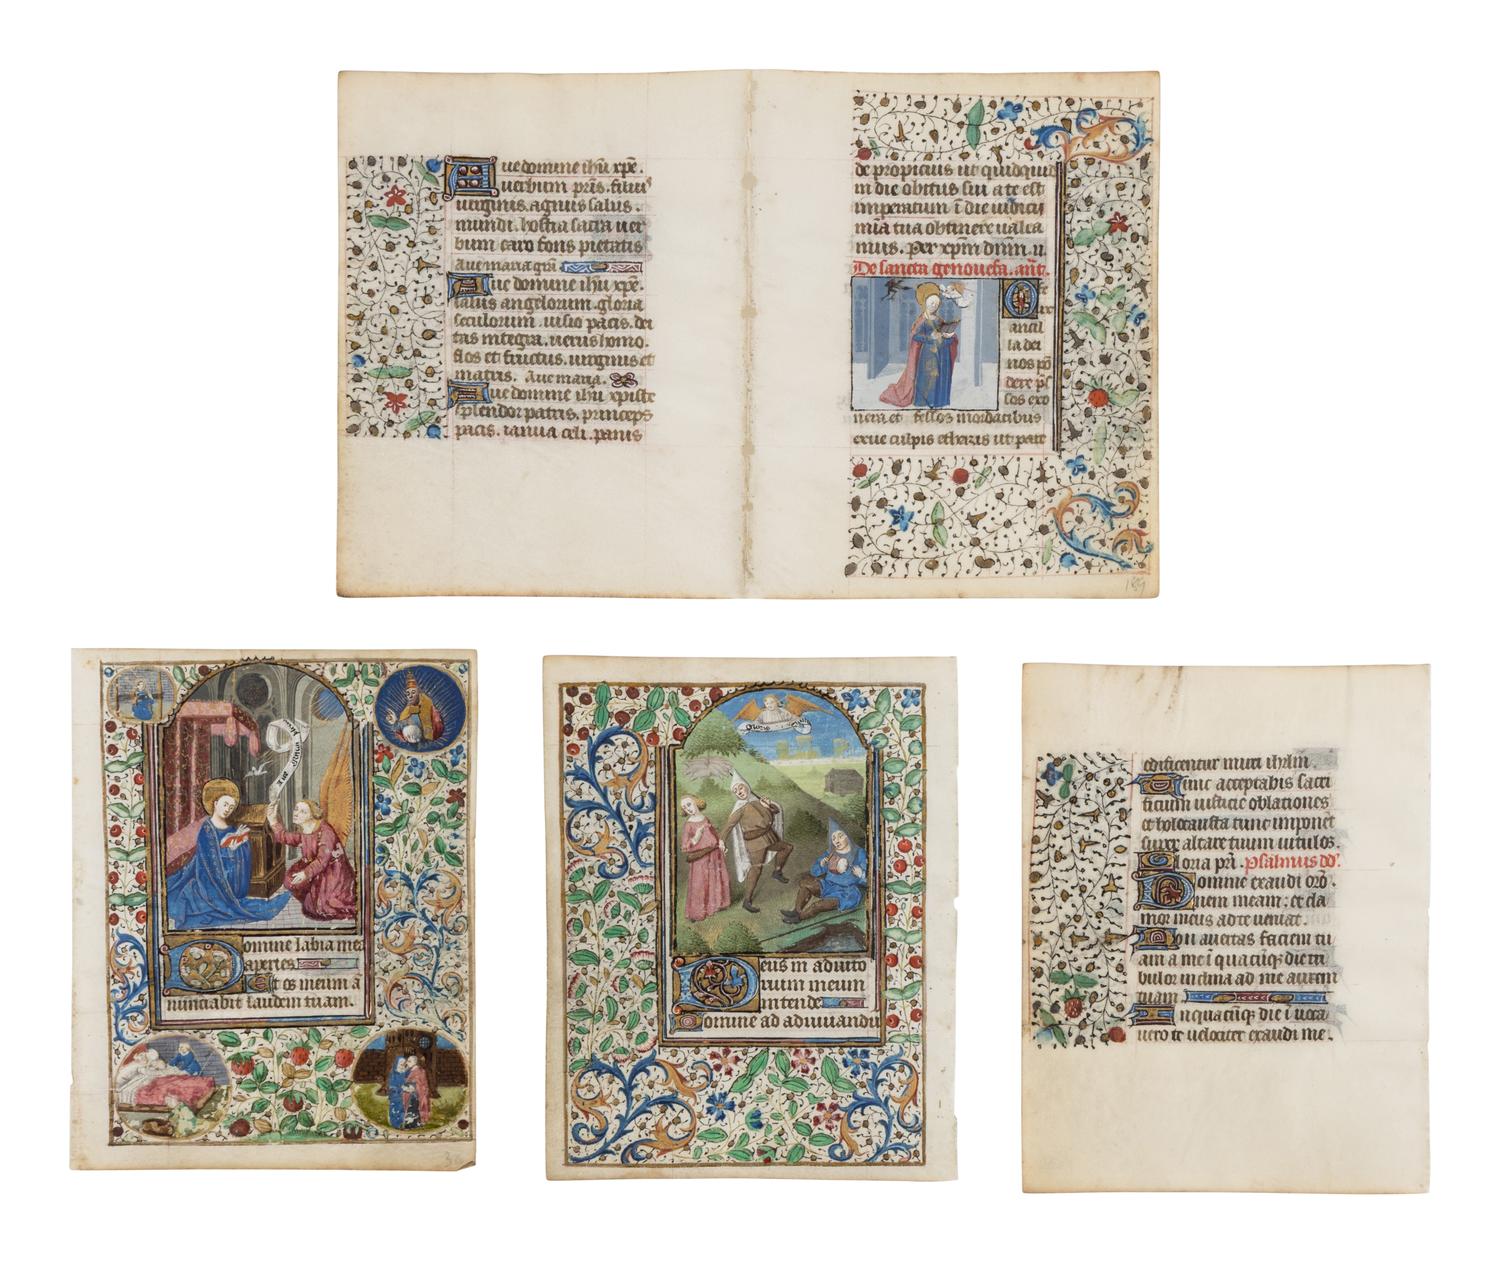 Aue domine ihu xpe.
uerbum pris. filius
uirginis. agnus salus
mundi. hostia sacra uer
bum caro fons pietatis
Aue maria gra
Aue domine ihu xpe.
laus angelorum. gloria
seculorum. uisio pacis. dei
tas integra. uerus homo.
flos et fructus. uirginis et
matris. Aue maria.
Aue domine ihu xpiste
splendor patris. princeps
pacis. ianua celi. panis
de propicius ut quidquid
in die obitus sui a te est
imperatum i die iudicii
mia tua obtinere ualea
mus. Per xpm dnm.
De sancta genouefa. ant.
O
ancil
la dei
nos po
dere pc
cos exo
nera et fessos mordacibus
exue culpis etheris ut pate
189
Aue
Domine labia mea
aperies.
Et os meum a
nunciabit laudem tuam.
Gloria
Deus in adiuto
rium meum
intende
Domine ad adiuuandu
edificentur muri ihrlm.
Tunc acceptabis sacri
ficium iusticie oblationes
et holocausta tunc imponet
super altare tuum uitulos.
Gloria pri. Psalmus dd.
Domine exaudi oro
nem meam: et cla
mor meus ad te ueniat.
Non auertas faciem tu
am a me i quacuq die tri
bulor inclina ad me aurem
tuam
In quacuq die i uoca
uero te uelociter exaudi me.